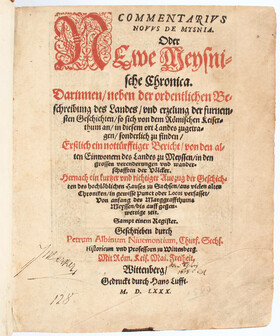 COMMENTARIVS
NOVVS DE MYSNIA.
Oder
Newe Meysni-
sche Chronica.
Darinnen/ neben der ordentlichen Be-
schreibung des Landes/ vnd erzelung der furnem-
sten Geschichten/ so sich von dem Römischen Keiser-
thum an/ in diesem ort Landes zugetra-
gen/ sonderlich zu finden/
Erstlich ein notürfftiger Bericht/ von den al-
ten Einwonern des Landes zu Meyssen/ in den
grossen verenderungen vnd wander-
schafften der Völcker.
Hernach ein kurtzer vnd richtiger Auszug der Geschich-
ten des hochlöblichen Hauses zu Sachsen/ aus vielen alten
Chroniken/ in gewisse Punct oder Locos verfasset/
Von anfang des Marggraffthumbs
Meyssen/ bis auff gegen-
wertige zeit.
Sampt einem Register.
Geschrieben durch
Petrum Albinum Niuemontium, Churf. Sechs.
Historicum vnd Professorn zu Wittemberg.
Mit Röm. Keis. Mai. Freiheit.
Wittenberg/
Gedruckt durch Hans Lufft.
M. D. LXXX.
128